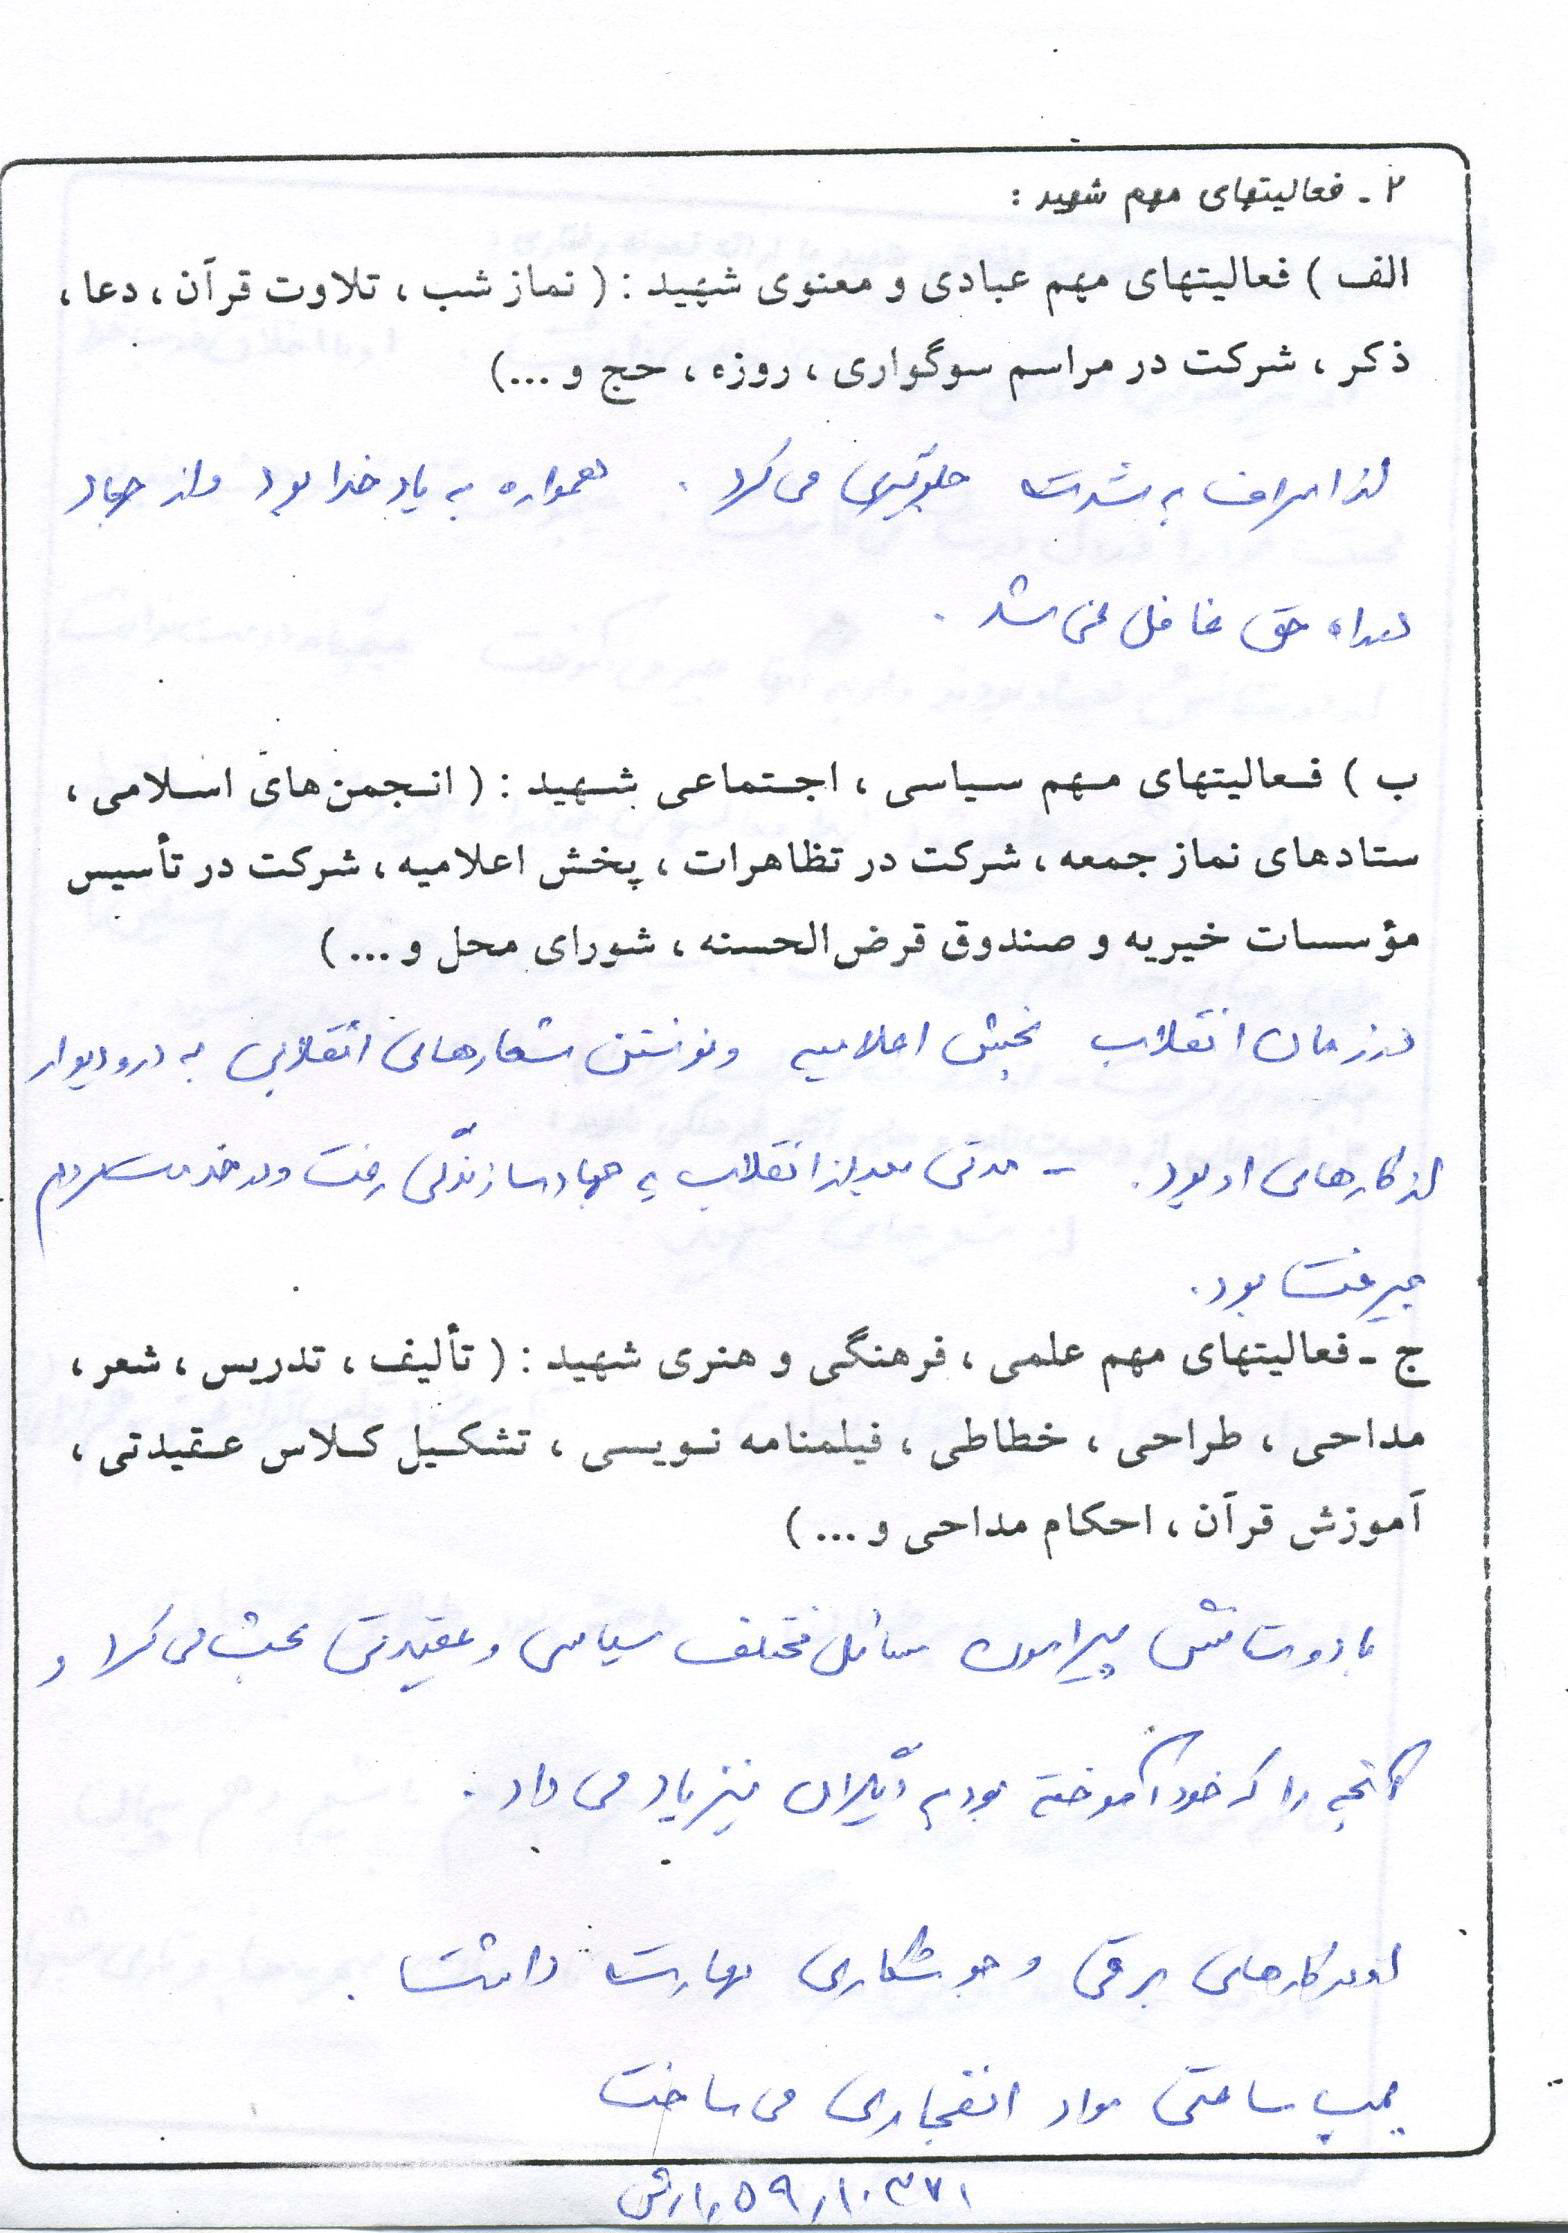 ۲ - فعالیتهای مهم شهید :
الف ) فعالیتهای مهم عبادی و معنوی شهید : ( نماز شب ، تلاوت قرآن ، دعا ،
ذکر ، شرکت در مراسم سوگواری ، روزه ، حج و ...)
از اسراف به شدت جلوگیری می کرد . همواره به یاد خدا بود و از جهاد
در راه حق غافل نمی شد .
ب ) فعالیتهای مهم سیاسی ، اجتماعی شهید : ( انجمن های اسلامی ،
ستادهای نماز جمعه ، شرکت در تظاهرات ، پخش اعلامیه ، شرکت در تأسیس
مؤسسات خیریه و صندوق قرض الحسنه ، شورای محل و ... )
در زمان انقلاب پخش اعلامیه و نوشتن شعارهای انقلابی به در و دیوار
از کارهای او بود . - مدتی بعد از انقلاب به جهاد سازندگی رفت و در خدمت مردم
جیرفت بود .
ج - فعالیتهای مهم علمی ، فرهنگی و هنری شهید : ( تألیف ، تدریس ، شعر ،
مداحی ، طراحی ، خطاطی ، فیلمنامه نویسی ، تشکیل کلاس عقیدتی ،
آموزش قرآن ، احکام مداحی و ... )
با دوستانش پیرامون مسائل مختلف سیاسی و عقیدتی بحث می کرد و
آنچه را که خود آموخته بود به دیگران نیز یاد می داد .
او در کارهای برقی و جوشکاری مهارت داشت .
بمب ساعتی مواد انفجاری می ساخت
۱۰۳۷۱ ر ۵۹